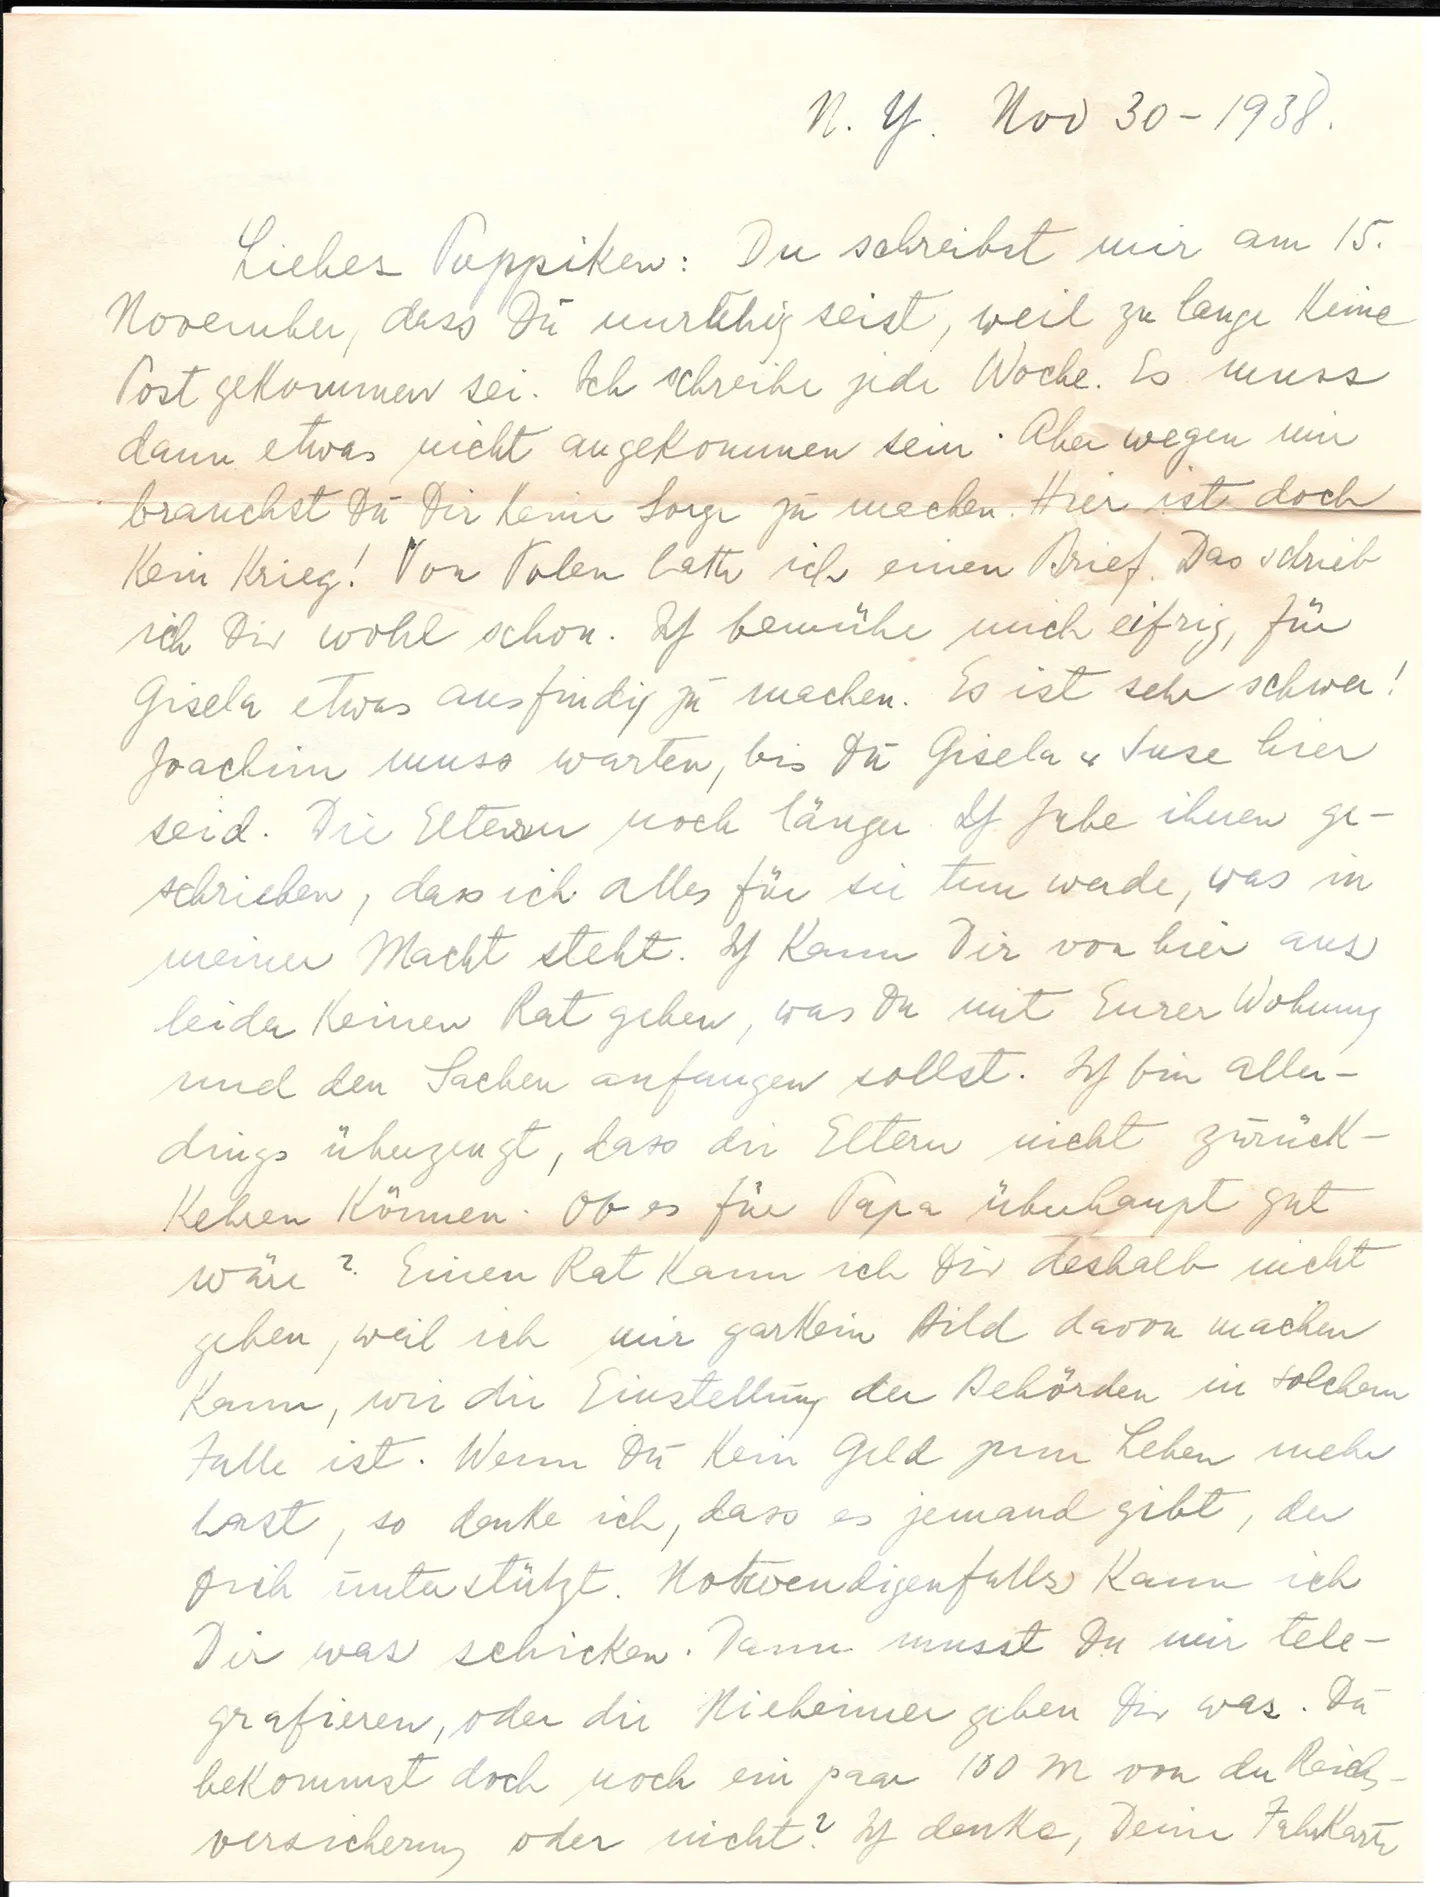 N. Y. Nov 30 - 1938.
Liebes Puppiken: Du schreibst mir am 15.
November, dass Du unruhig seist, weil zu lange keine
Post gekommen sei. Ich schreibe jede Woche. Es muss
dann etwas nicht angekommen sein. Aber wegen mir
brauchst Du Dir keine Sorge zu machen. Hier ist doch
kein Krieg! Von Polen hatte ich einen Brief. Das schrieb
ich Dir wohl schon. Ich bemühe mich eifrig, für
Gisela etwas ausfindig zu machen. Es ist sehr schwer!
Joachim muss warten, bis Du Gisela u Suse hier
seid. Die Eltern noch länger. Ich habe ihnen ge-
schrieben, dass ich alles für sie tun werde, was in
meiner Macht steht. Ich kann Dir von hier aus
leider keinen Rat geben, was Du mit Eurer Wohnung
und den Sachen anfangen sollst. Ich bin aller-
dings überzeugt, dass die Eltern nicht zurück-
kehren können. Ob es für Papa überhaupt gut
wäre? Einen Rat kann ich Dir deshalb nicht
geben, weil ich mir garkein Bild davon machen
kann, wie die Einstellung der Behörden in solchem
Falle ist. Wenn Du kein Geld zum Leben mehr
hast, so denke ich, dass es jemand gibt, der
Dich unterstützt. Notwendigenfalls kann ich
Dir was schicken. Dann musst Du mir tele-
grafieren, oder die Nieheimer geben Dir was. Du
bekommst doch noch ein paar 100 M von der Reichs-
versicherung oder nicht? Ich denke, Deine Fahrkarte